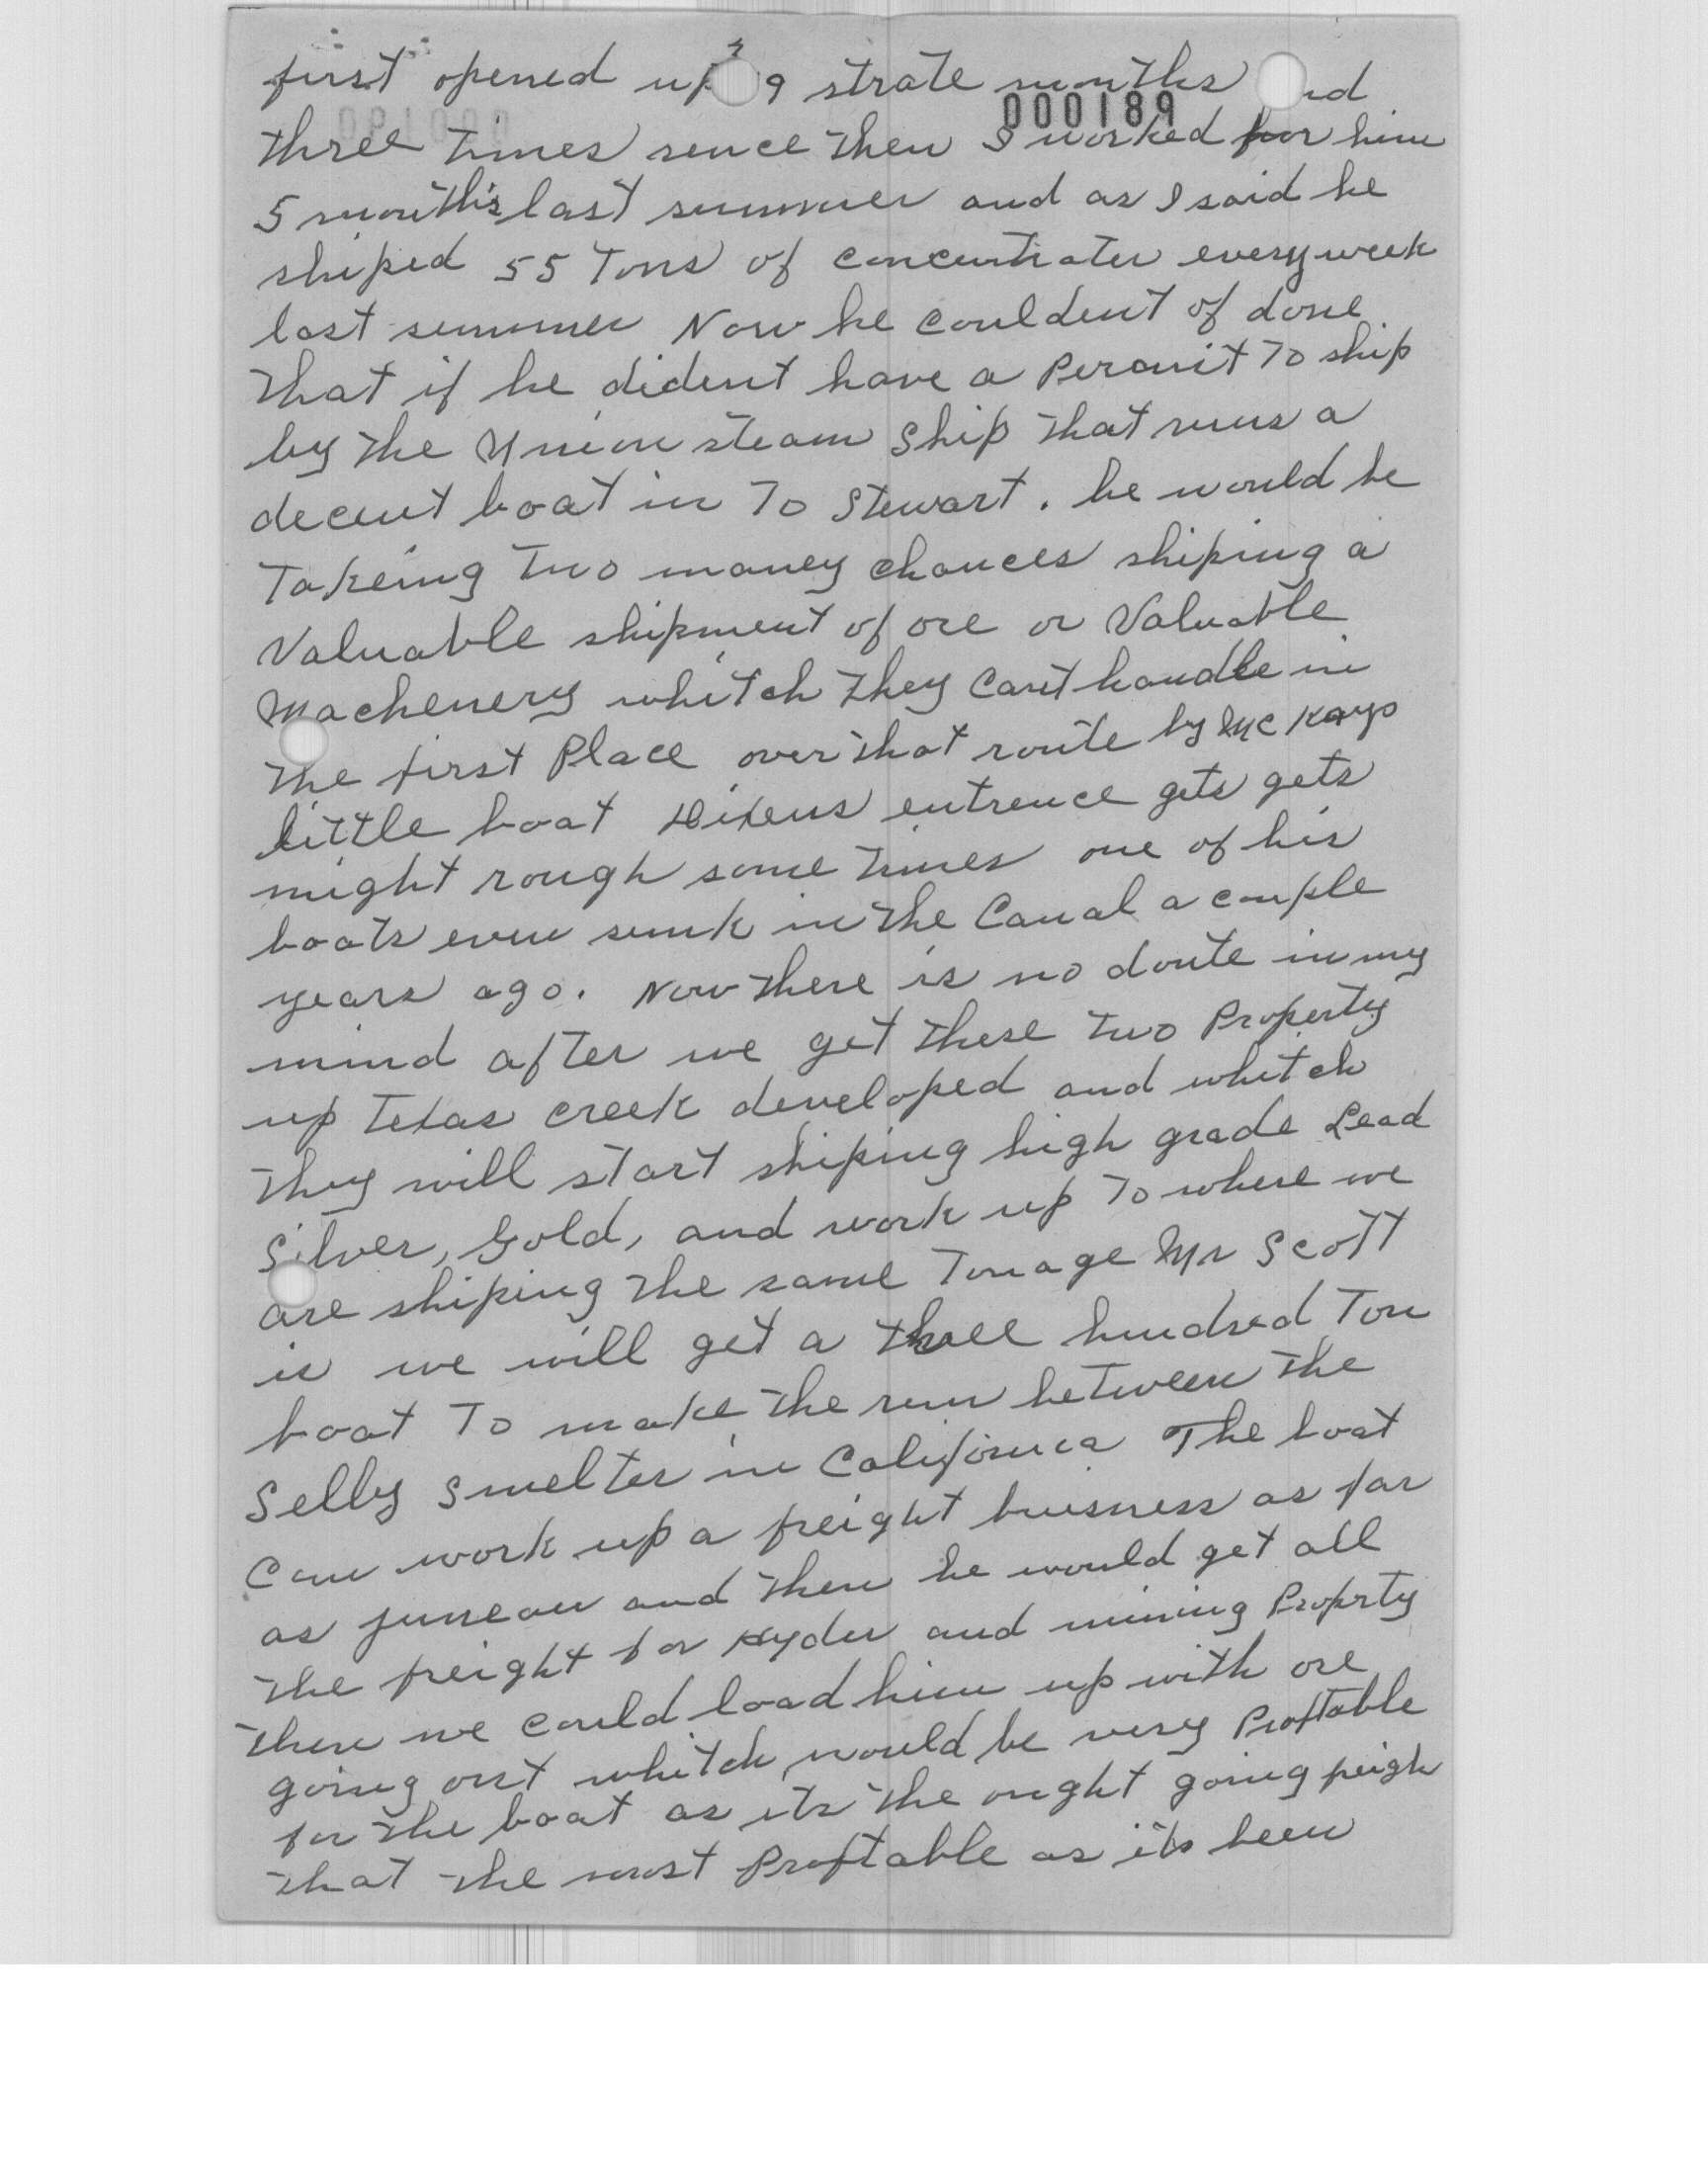 first opened up 9 strate months nd
000189
three times sence then I worked for him
5 months last summer and as I said he
shiped 55 Tons of concentrates every week
last summer Now he couldent of done
that if he dident have a Permit To ship
by the Union steam Ship that runs a
decent boat in To Stewart. he would be
Takeing Two money chances shiping a
Valuable shipment of ore or Valuable
Machenery whitch they Cant handle in
the first Place over that route by McKays
little boat Dixens entrence gets gets
might rough some times one of his
boats even sunk in the Canal a couple
years ago. Now there is no doute in my
mind after we get these Two Property
up Texas Creek developed and whitch
they will start shiping high grade Lead
Silver, Gold, and work up To where we
are shiping the same Tonage Mr Scott
is we will get a three hundred Ton
boat To make the run between the
Selby Smelter in California The boat
Can work up a freight buisness as far
as Juneau and then he would get all
the freight for Hyder and mining Proprty
then we could load him up with ore
going out whitch would be very Proftable
for the boat as its the ought going freigh
that the most Proftable as its been